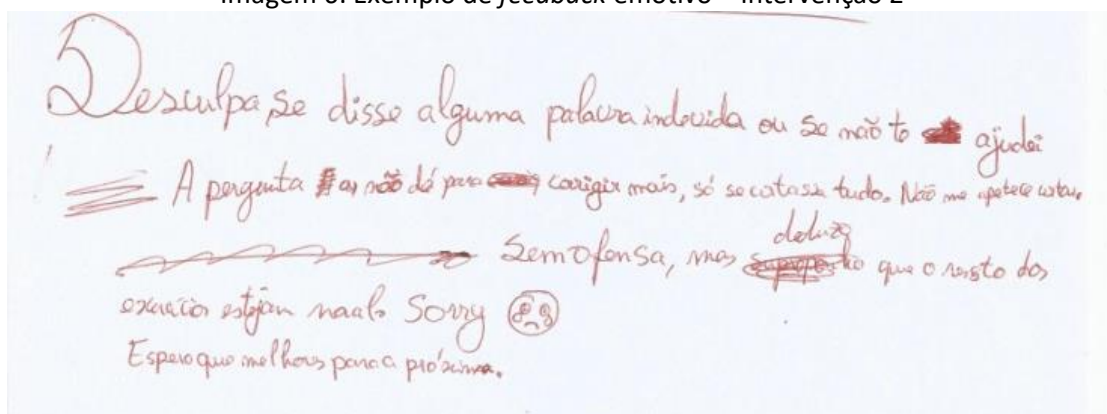 Imagem 6: Exemplo de feedback emotivo – Intervenção 2
Desculpa, se disse alguma palavra indevida ou se não te ajudei
A pergunta não dá para corrigir mais, só se cortasse tudo. Não me apetece cortar.
Sem ofensa, mas deduzo que o resto dos
exercícios estejam mal. Sorry
Espero que melhores para a próxima.